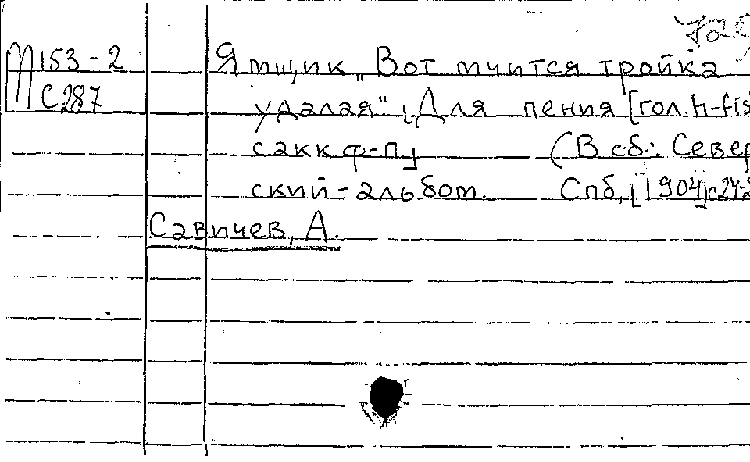 М153-2
С287
Ямщик „Вот мчится тройка
удалая". Для пения [гол. h-fis
с акк ф-п]
(В сб.: Север
ский-альбом. Спб, [1904]
Савичев, А.